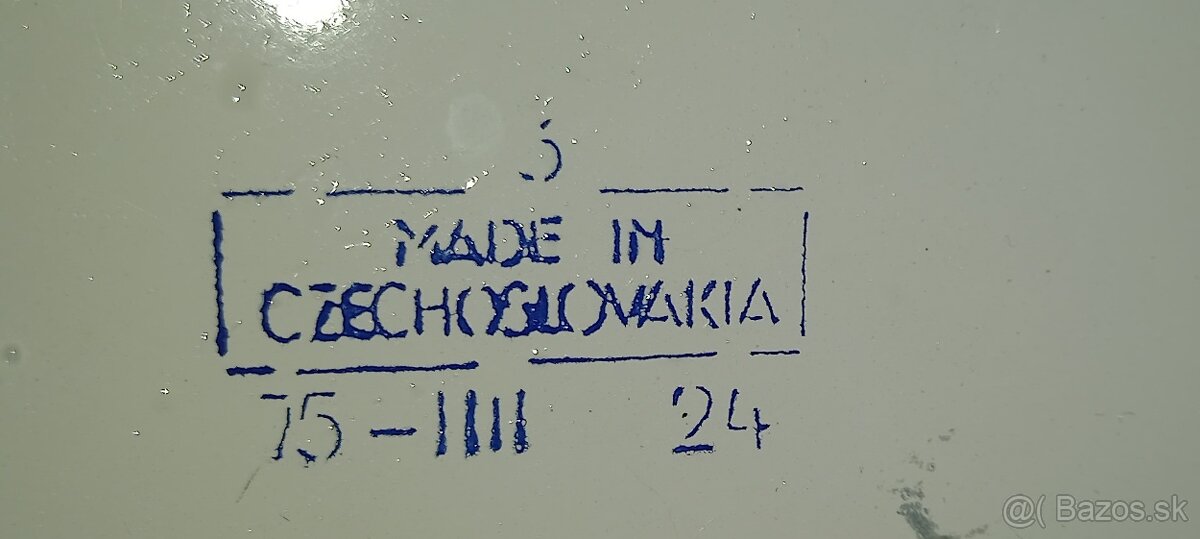 5
MADE IN
CZECHOSLOVAKIA
75-IIII 24
@( Bazos.sk